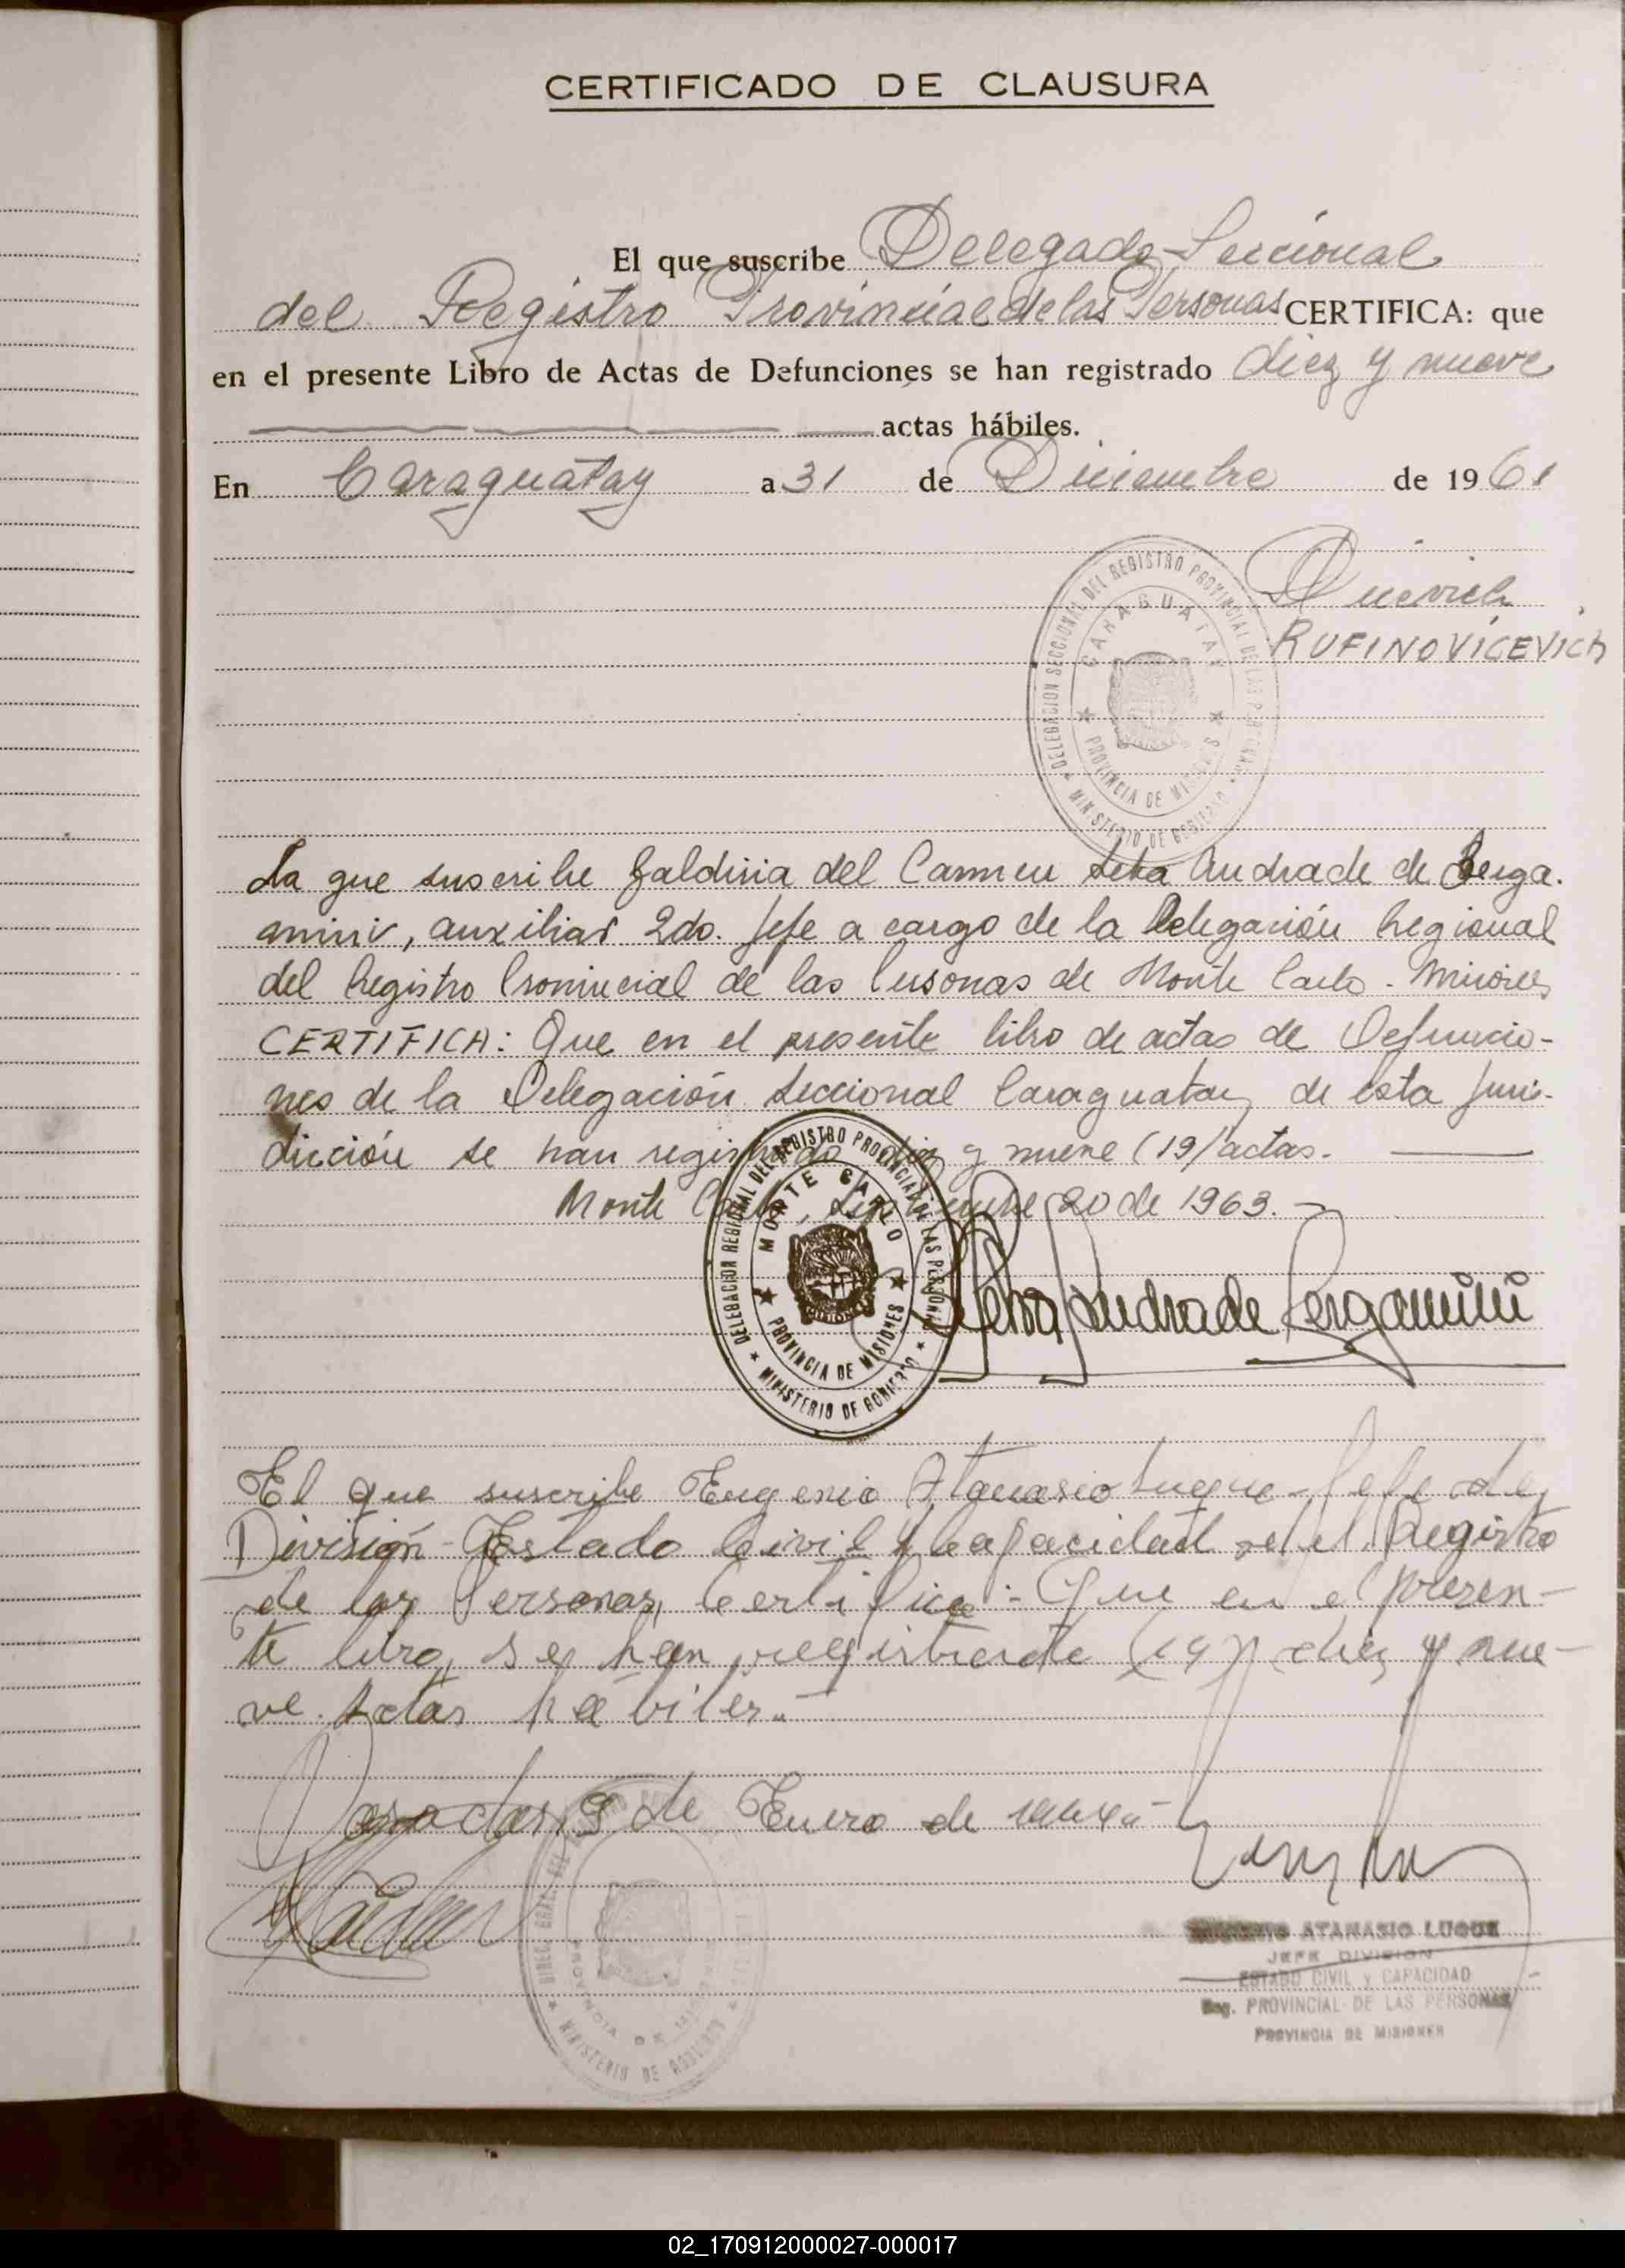 CERTIFICADO DE CLAUSURA
El que suscribe Delegado Seccional
del Registro Provincial de las Personas CERTIFICA: que
en el presente Libro de Actas de Defunciones se han registrado diez y nueve
actas hábiles.
En Caraguatay a 31 de Diciembre de 1961
DELEGACION SECCIONAL DEL REGISTRO PROVINCIAL DE LAS PERSONAS
CARAGUATAY
PROVINCIA DE MISIONES
MINISTERIO DE GOBIERNO
RUFINO VICEVICH
La que suscribe Galdina del Carmen Andrade de Berga-
mini, auxiliar 2do. Jefe a cargo de la Delegación Regional
del Registro Provincial de las Personas de Monte Carlo - Misiones
CERTIFICA: Que en el presente libro de actas de Defuncio-
nes de la Delegación Seccional Caraguatay de esta juris-
dicción se han registrado diez y nueve (19) actas.
Monte Carlo, Septiembre 20 de 1963.-
DELEGACION REGIONAL DEL REGISTRO PROVINCIAL DE LAS PERSONAS
MONTE CARLO
MISIONES
PROVINCIA DE MISIONES
MINISTERIO DE GOBIERNO
Andrade Bergamini
El que suscribe Eugenio Atanasio Luque - Jefe de
División - Estado Civil y Capacidad del Registro
de las Personas, Certifica: Que en el presen-
te libro, se han registrado (19) diez y nue-
ve actas hábiles.-
Posadas, 9 de Enero de
MINISTERIO DE GOBIERNO
PROVINCIA DE MISIONES
EUGENIO ATANASIO LUQUE
JEFE DIVISION
ESTADO CIVIL y CAPACIDAD
Reg. PROVINCIAL DE LAS PERSONAS
PROVINCIA DE MISIONES
02_170912000027-000017